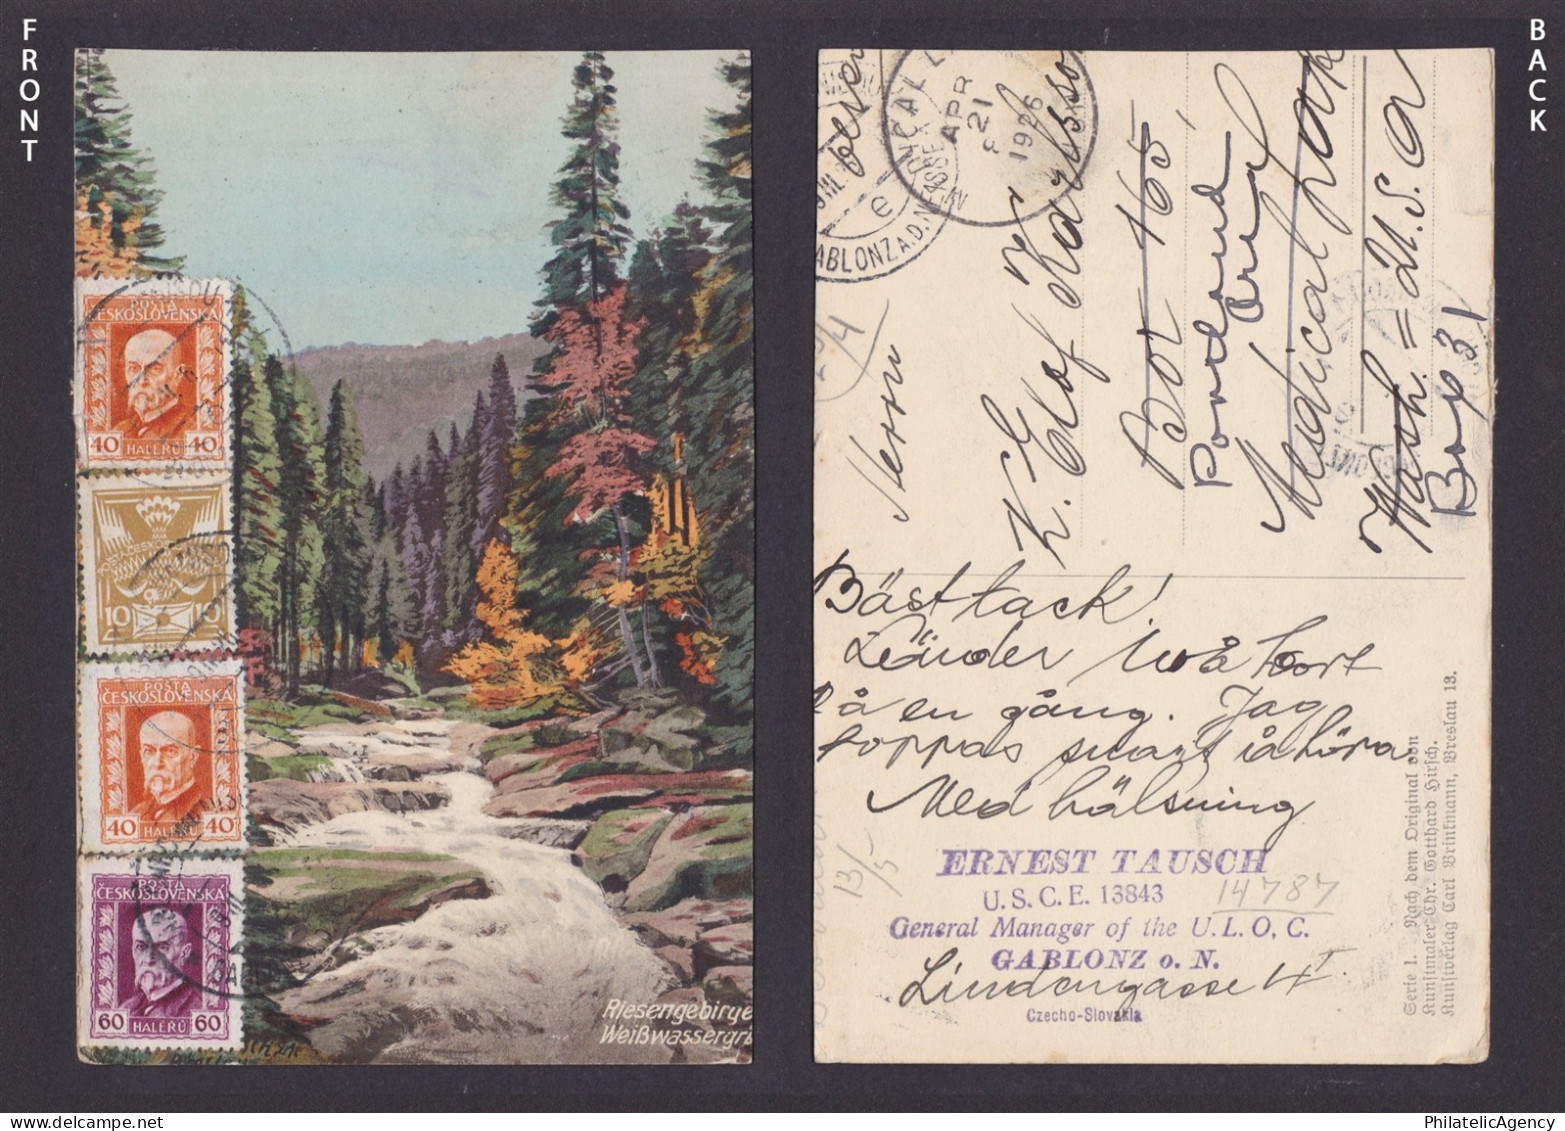 FRONT
BACK
POŠTA
ČESKOSLOVENSKÁ
40 40
HALÉŘŮ
10 10
POŠTA
ČESKOSLOVENSKÁ
40 40
HALÉŘŮ
POŠTA
ČESKOSLOVENSKÁ
60 60
HALÉŘŮ
Riesengebirge
Weißwassergr
MEDICAL L
APR
21
1926
e
GABLONZ A.D.N.
Herrn
K. Elof Karlsson
Box 165
Portland
Ore
Medical Lake
Wash. = U.S.A
Box 31
Bäst tack!
Länder två kort
på en gång. Jag
hoppas snart åhöra
Med hälsning
13/5
ERNEST TAUSCH
U.S.C.E. 13843
14787
General Manager of the U.L.O.C.
GABLONZ o. N.
Lindengasse 4
Czecho-Slovakia
Serie I. Nach dem Original von
Kunstmaler Chr. Gotthard Hirsch.
Kunstverlag Carl Brinkmann, Breslau 13.
PhilatelicAgency